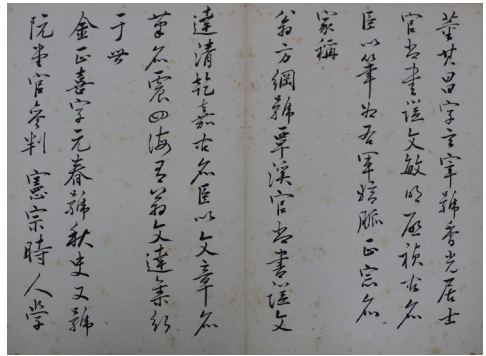 董其昌字玄宰號香光居士
官尚書謚文敏明啟禎古名
臣以筆為右軍嫡脈正宗名
家稱
翁方綱號覃溪官尚書謚文
達清乾嘉古名臣以文章名
筆名震四海有翁文達集行
于世
金正喜字元春號秋史又號
阮堂官參判 憲宗時人學